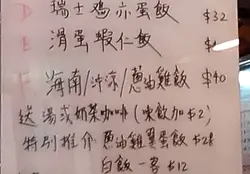 D 瑞士鸡亦蛋飯 $32
E 滑蛋蝦仁飯 $
F 海南/沖涼/蔥油雞飯 $40
送湯或奶茶咖啡(凍飲加$2)
特別推介 蔥油雞雙蛋飯 $28
白飯一客 $12